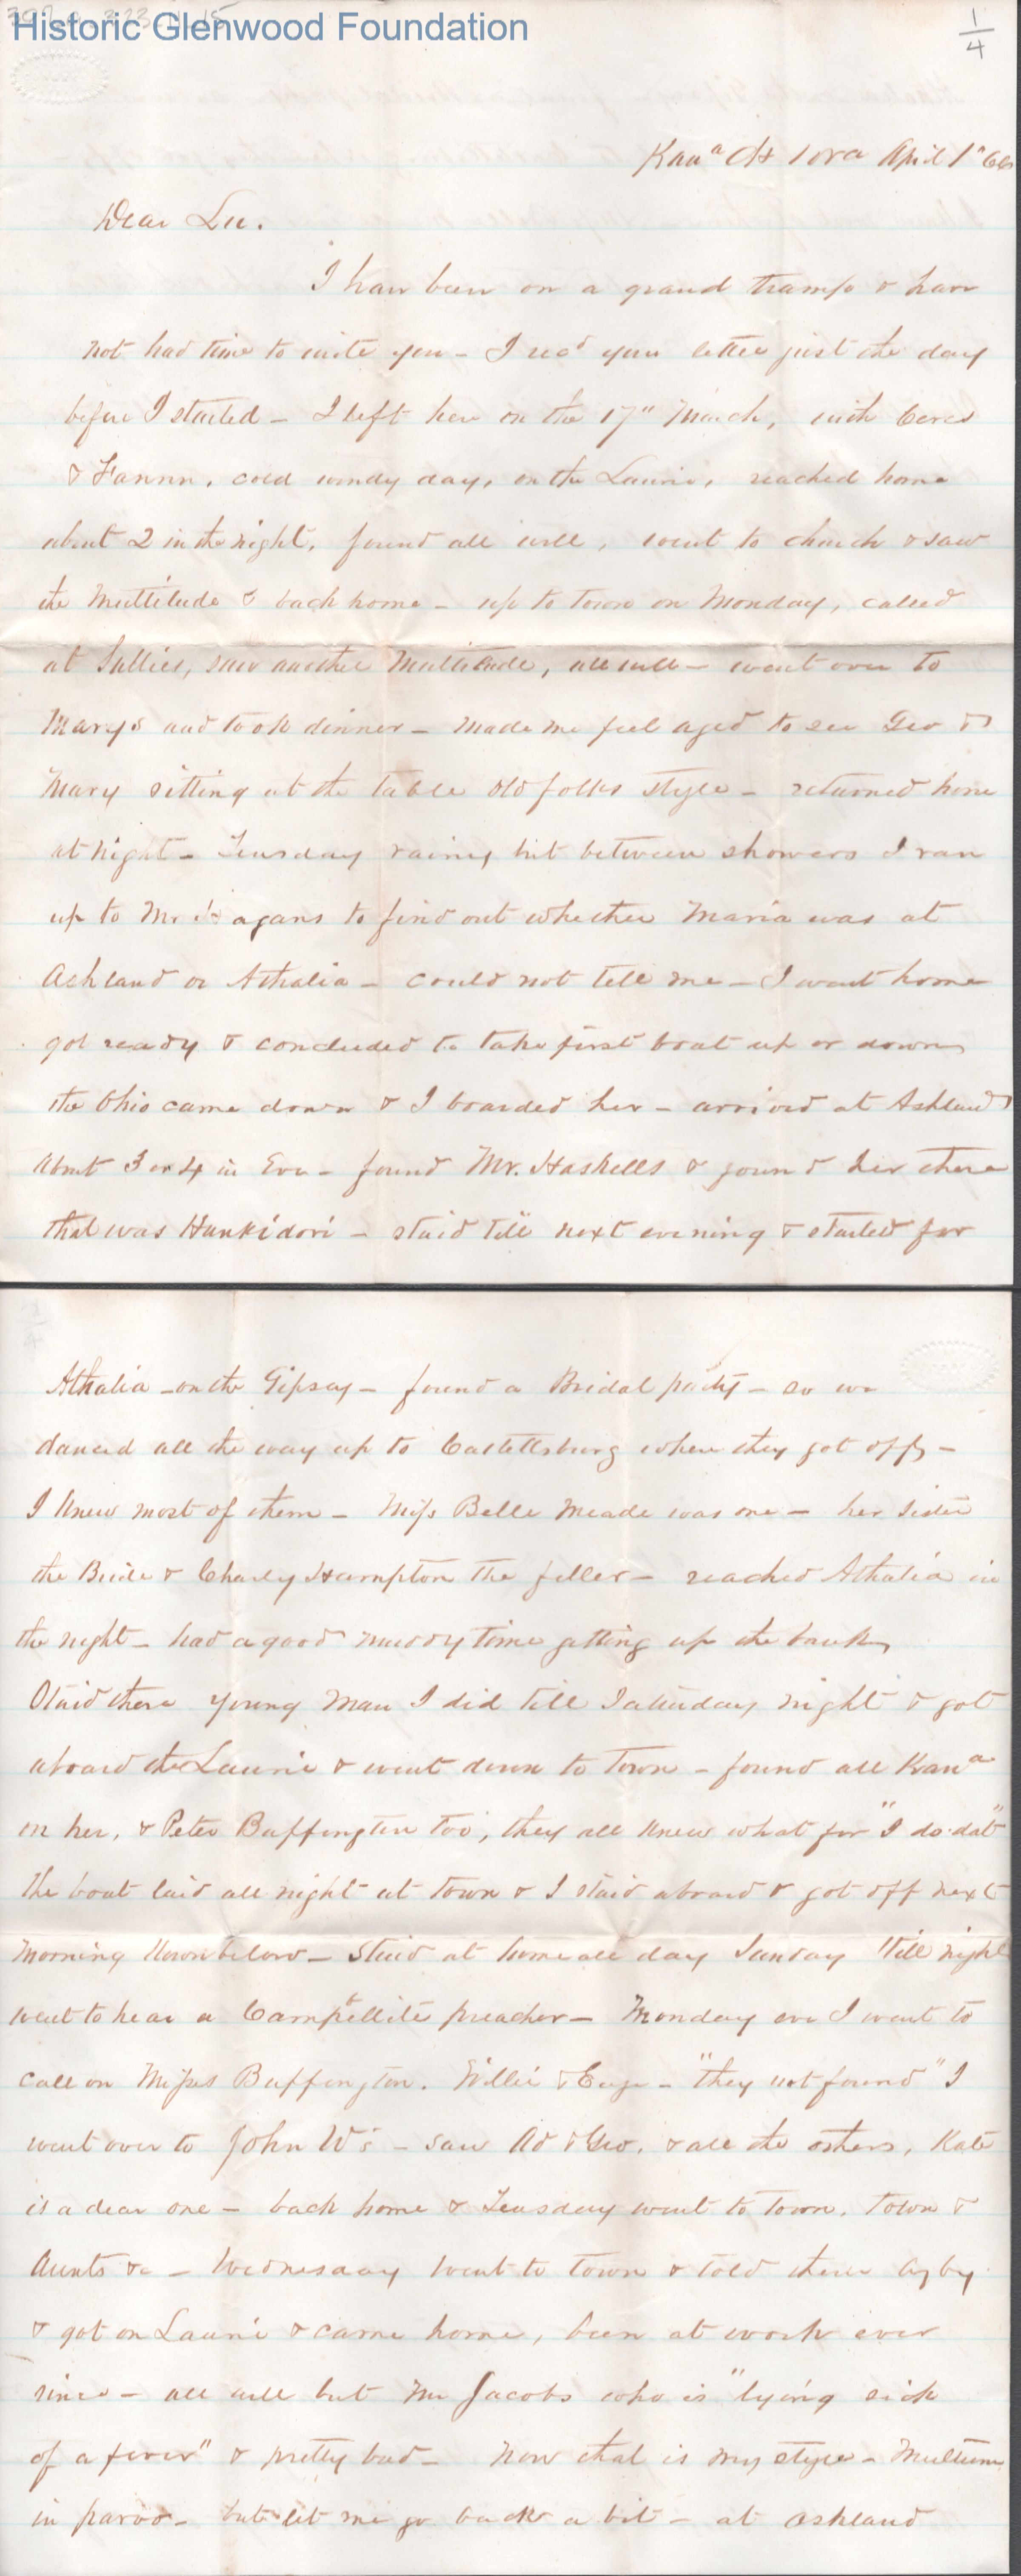 Historic Glenwood Foundation
1/4
Kanª C H 1ova April 1" 66
Dear Lu.
I have been on a grand tramp & have
not had time to write you - I recd your letter just the day
before I started - I left here on the 17" March, with Ceres
& Fannn, cold windy day, on the Laurie, reached home
about 2 in the night, found all well, went to church & saw
the Multitude & back home - up to town on Monday, called
at Sallies, saw another Multitude, all well - went over to
Marys and took dinner - made me feel aged to see Geo &
Mary sitting at the table old folks style - returned home
at night - Teusday rainy bit between showers I ran
up to Mr. Hagans to find out whether Maria was at
Ashland or Athalia - could not tell me - I went home
got ready & concluded to take first boat up or down,
the Ohio came down & I boarded her - arrived at Ashland
about 3 or 4 in Eve - found Mr. Haskells & found her there
that was Hunkidori - staid till next evening & started for
Athalia - on the Gipsey - found a Bridal party - so we
danced all the way up to Catlettsburg where they got off -
I knew most of them - Miss Belle Meade was one - her sister
the Bride & Charly Hampton the feller - reached Athalia in
the night - had a good muddy time getting up the bank,
Staid there young man I did till Satturday night & got
aboard the Laurie & went down to Town - found all Kanª
on her, & Peter Buffington too, they all knew what for "I do dat"
the boat laid all night at town & I staid aboard & got off next
morning down below - Staid at home all day Sunday till night
went to hear a Campbellite preacher - Monday eve I went to
call on Misses Buffington. Willie & Euge - "they not found" I
went over to John W's - saw Ad & Geo. & all the others, Kate
is a dear one - back home & Teusday went to Town. Town &
Aunts &c - Wednesday went to town & told them by by
& got on Laurie & came home, been at work ever
since - all well but Mr Jacobs who is "lying sick
of a fever" & pretty bad - Now that is my style - Multum
in parvo - but let me go back a bit - at Ashland